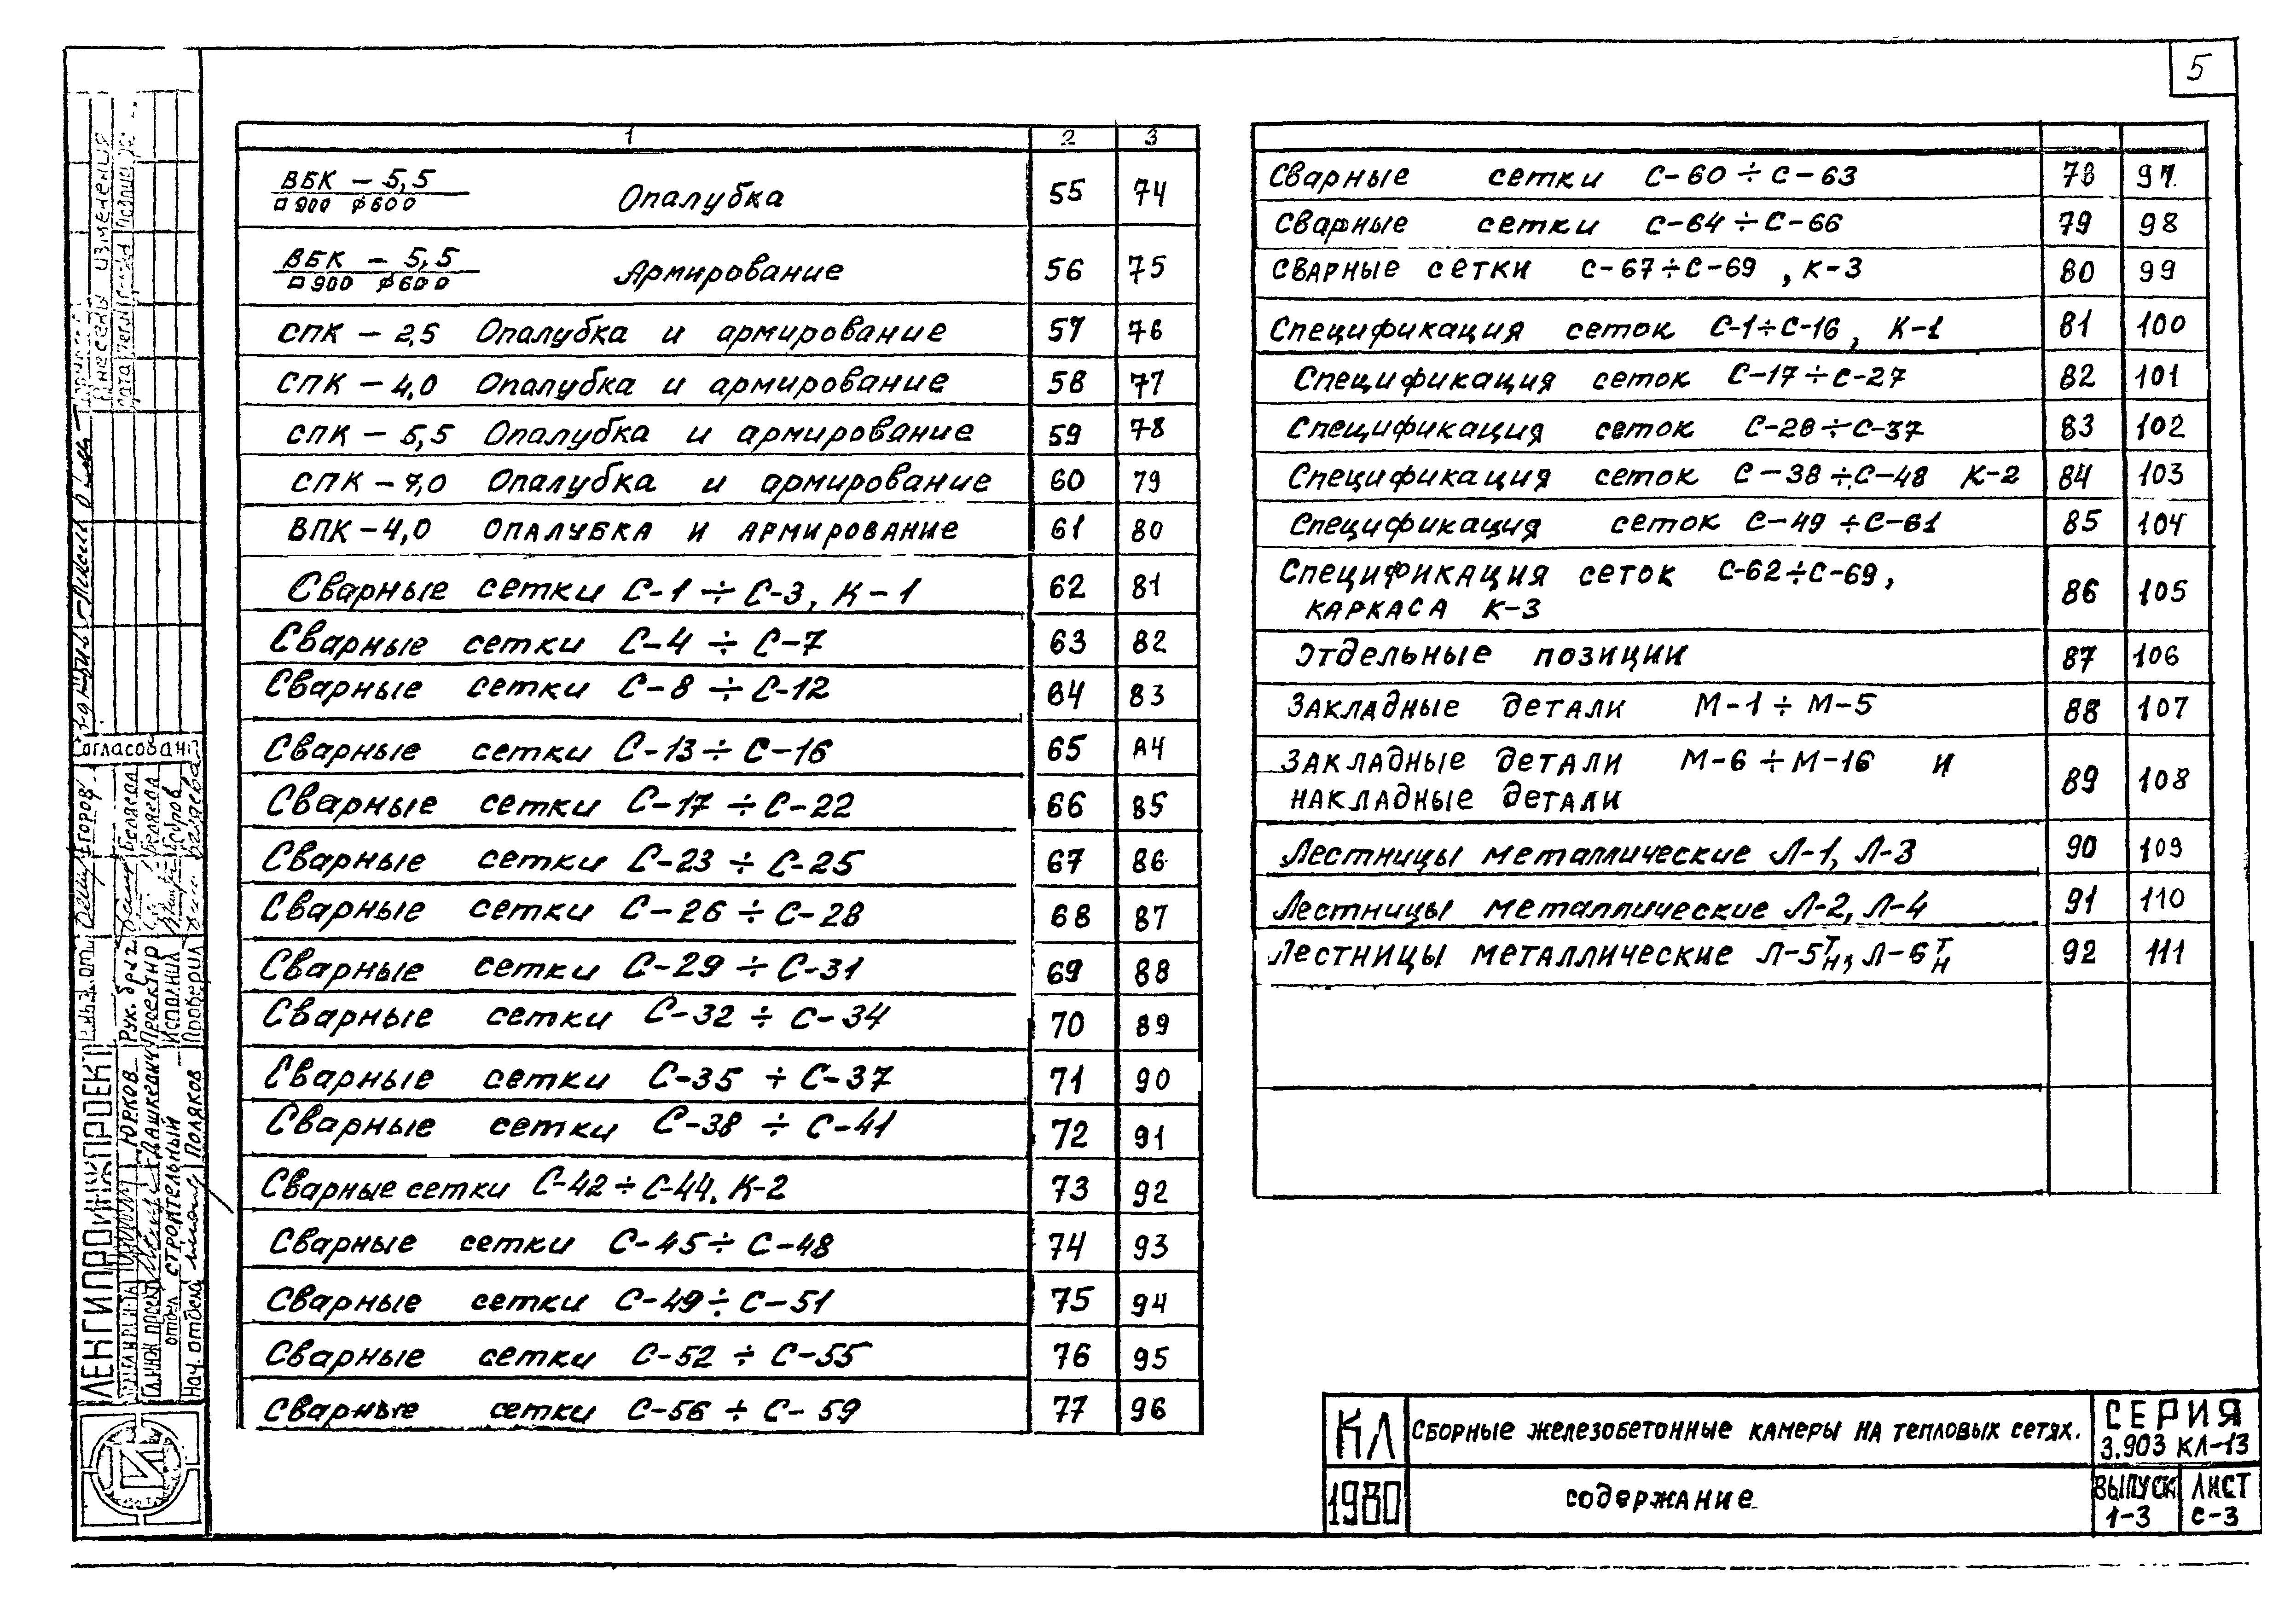 5
1 2 3
ВБК – 5,5
□ 900 ϕ600 Опалубка 55 74
ВБК – 5,5
□ 900 ϕ600 Армирование 56 75
СПК – 2,5 Опалубка и армирование 57 76
СПК – 4,0 Опалубка и армирование 58 77
СПК – 5,5 Опалубка и армирование 59 78
СПК – 7,0 Опалубка и армирование 60 79
ВПК – 4,0 ОПАЛУБКА И АРМИРОВАНИЕ 61 80
Сварные сетки С-1 ÷ С-3, К-1 62 81
Сварные сетки С-4 ÷ С-7 63 82
Сварные сетки С-8 ÷ С-12 64 83
Сварные сетки С-13 ÷ С-16 65 84
Сварные сетки С-17 ÷ С-22 66 85
Сварные сетки С-23 ÷ С-25 67 86
Сварные сетки С-26 ÷ С-28 68 87
Сварные сетки С-29 ÷ С-31 69 88
Сварные сетки С-32 ÷ С-34 70 89
Сварные сетки С-35 ÷ С-37 71 90
Сварные сетки С-38 ÷ С-41 72 91
Сварные сетки С-42 ÷ С-44, К-2 73 92
Сварные сетки С-45 ÷ С-48 74 93
Сварные сетки С-49 ÷ С-51 75 94
Сварные сетки С-52 ÷ С-55 76 95
Сварные сетки С-56 ÷ С-59 77 96
Сварные сетки С-60 ÷ С-63 78 97
Сварные сетки С-64 ÷ С-66 79 98
СВАРНЫЕ СЕТКИ С-67 ÷ С-69, К-3 80 99
Спецификация сеток С-1 ÷ С-16, К-1 81 100
Спецификация сеток С-17 ÷ С-27 82 101
Спецификация сеток С-28 ÷ С-37 83 102
Спецификация сеток С-38 ÷ С-48 К-2 84 103
Спецификация сеток С-49 ÷ С-61 85 104
СПЕЦИФИКАЦИЯ СЕТОК С-62 ÷ С-69,
КАРКАСА К-3 86 105
Отдельные позиции 87 106
Закладные детали М-1 ÷ М-5 88 107
Закладные детали М-6 ÷ М-16 и
накладные детали 89 108
Лестницы металлические Л-1, Л-3 90 109
Лестницы металлические Л-2, Л-4 91 110
Лестницы металлические Л-5 Т/Н, Л-6 Т/Н 92 111
КЛ
1980
СБОРНЫЕ ЖЕЛЕЗОБЕТОННЫЕ КАМЕРЫ НА ТЕПЛОВЫХ СЕТЯХ.
СОДЕРЖАНИЕ
СЕРИЯ
3.903 КЛ-13
ВЫПУСК ЛИСТ
1-3 С-3
Согласовано
ЛЕНГИПРОИНЖПРОЕКТ
отдел строительный
Нач. отдела Поляков
Юрков
Рук. бриг. Беляева
Исполнил
Проверил
Внесены изменения